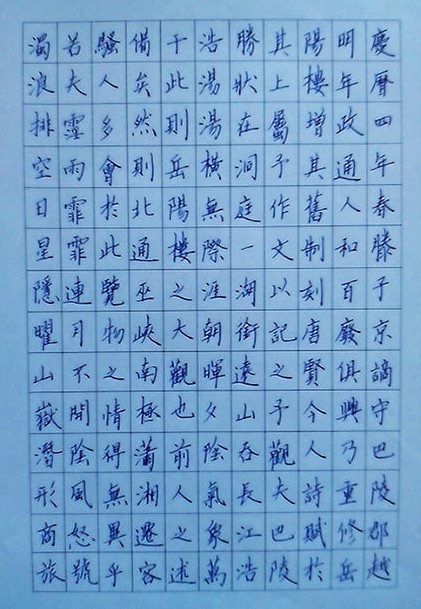 慶曆四年春滕子京謫守巴陵郡越
明年政通人和百廢俱興乃重修岳
陽樓增其舊制刻唐賢今人詩賦於
其上屬予作文以記之予觀夫巴陵
勝狀在洞庭一湖銜遠山吞長江浩
浩湯湯橫無際涯朝暉夕陰氣象萬
千此則岳陽樓之大觀也前人之述
備矣然則北通巫峽南極瀟湘遷客
騷人多會於此覽物之情得無異乎
若夫霪雨霏霏連月不開陰風怒號
濁浪排空日星隱曜山嶽潛形商旅